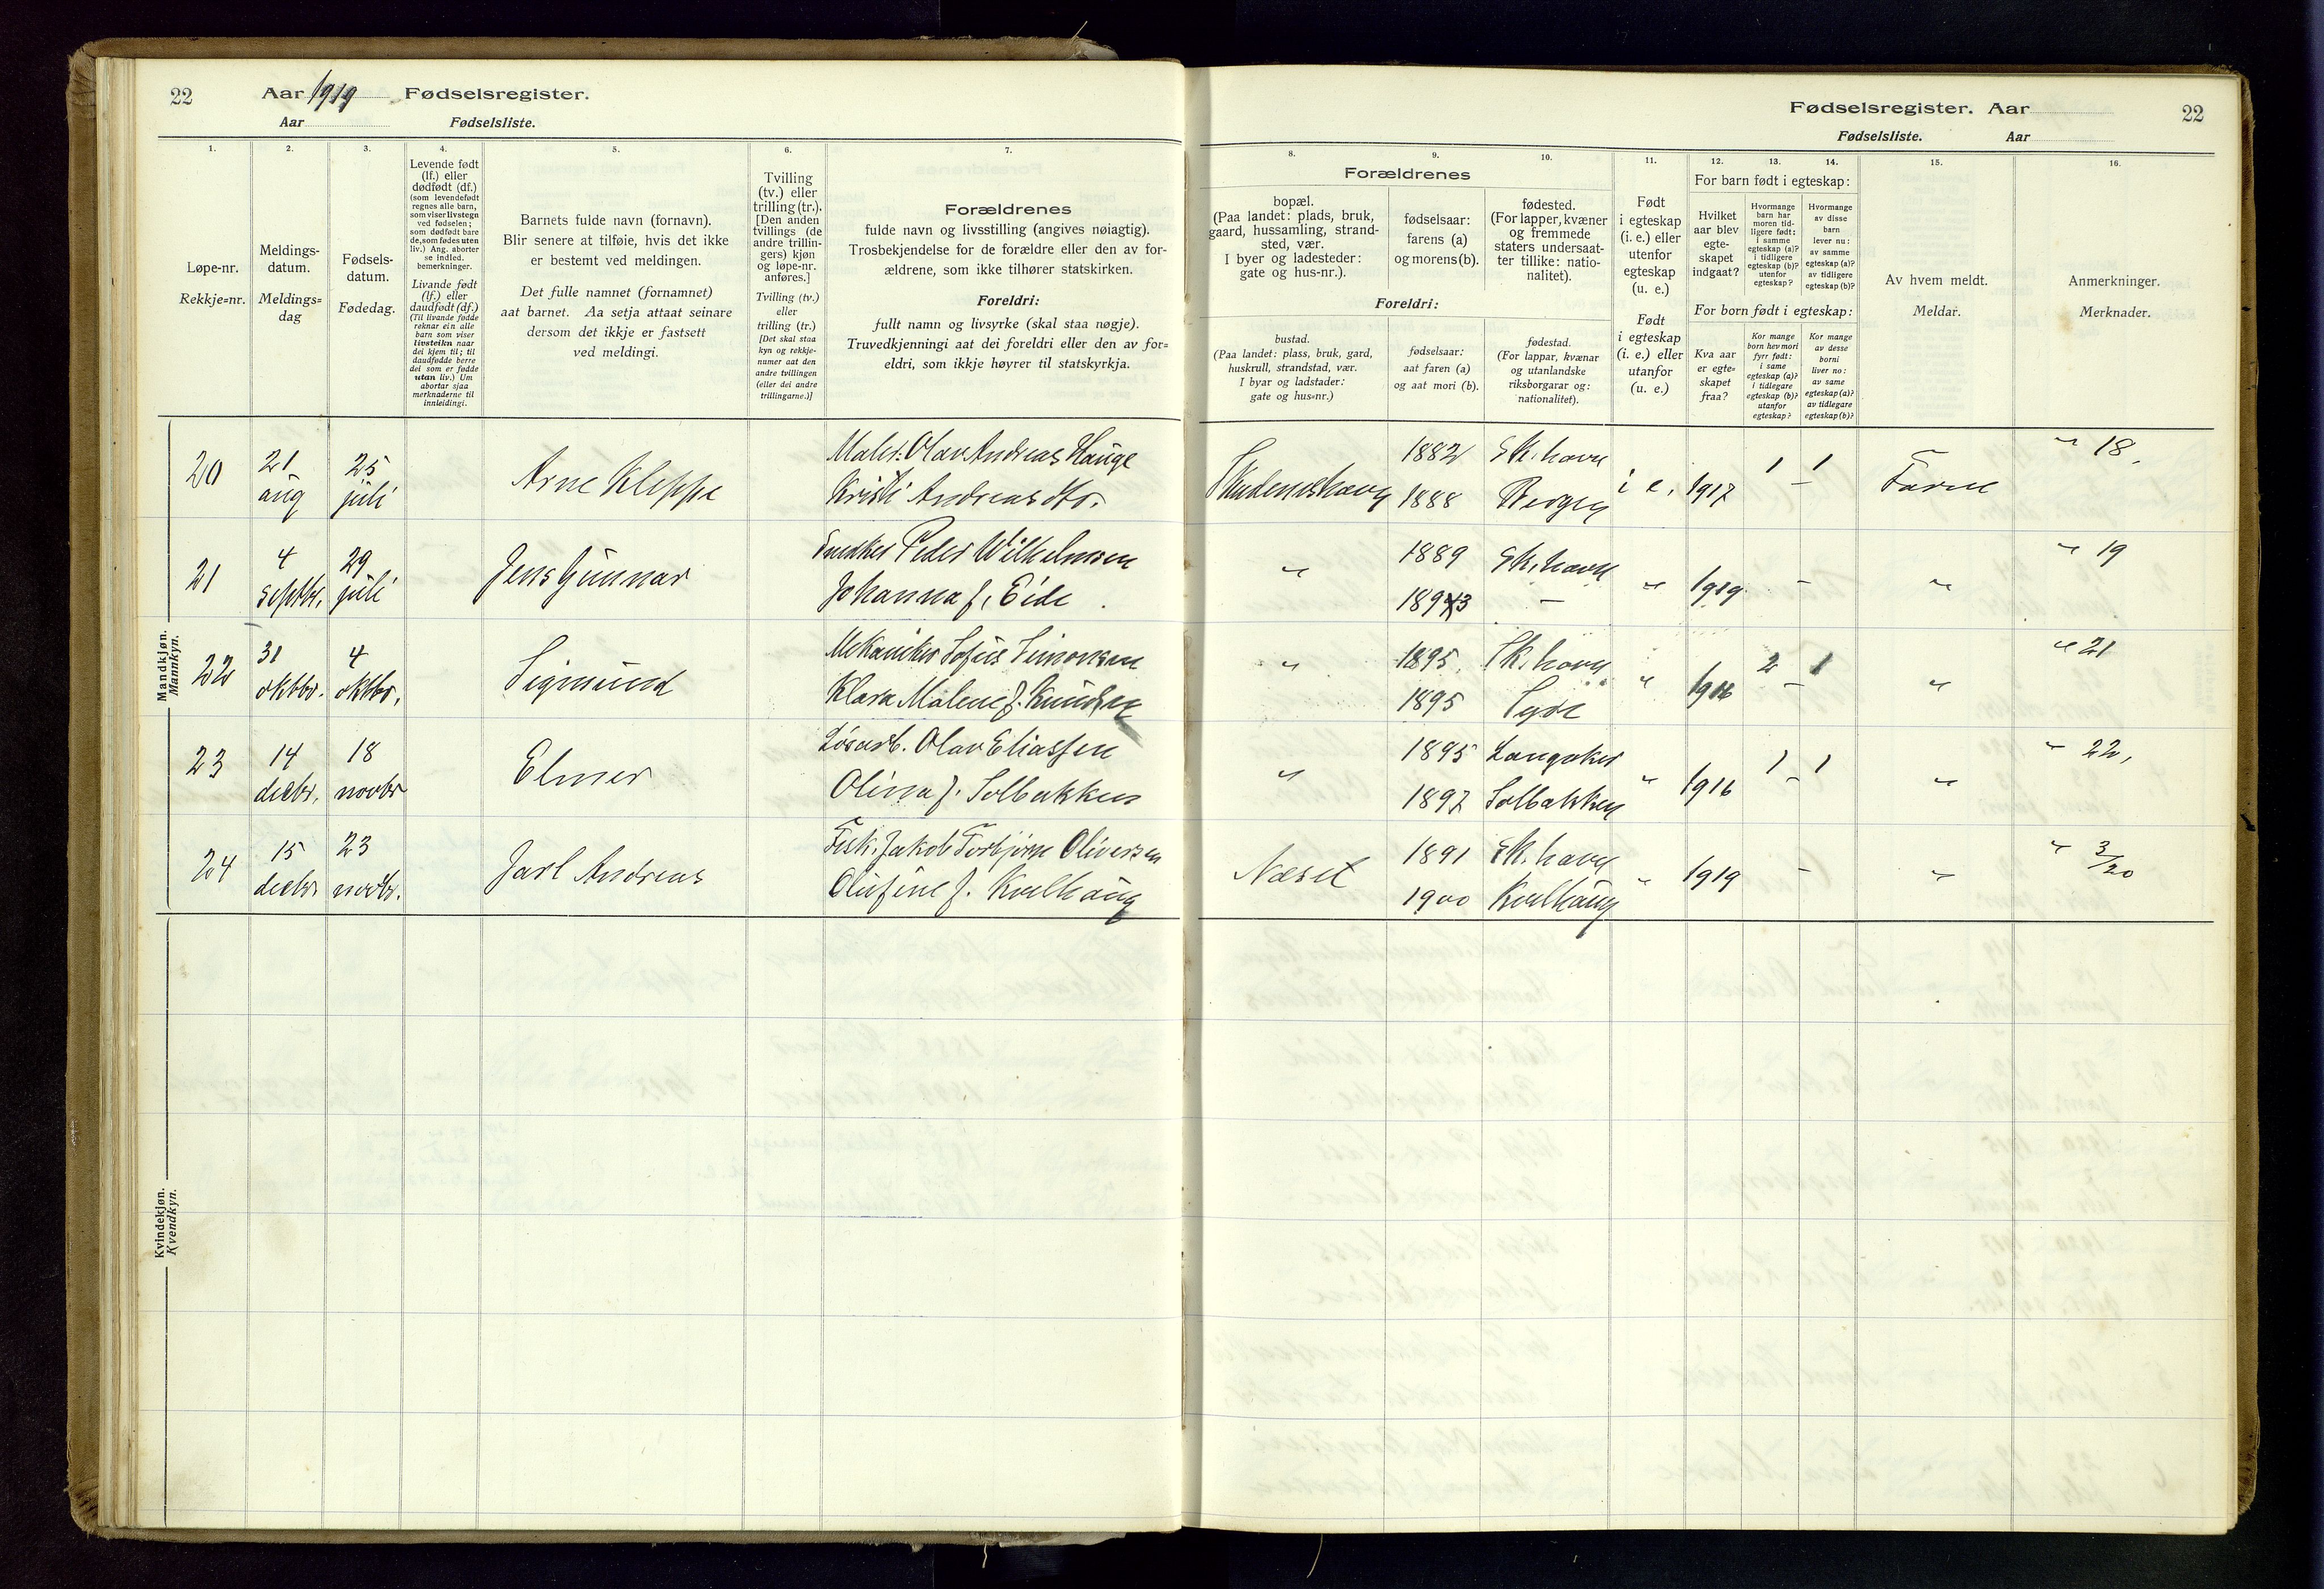 22 Aar 1919 Fødselsregister.
Aar Fødselsliste.
Fødselsregister. Aar 22
Fødselsliste. Aar
1. 2. 3. 4. 5. 6. 7.
Løpe-nr.
Rekkje=nr.
Meldings-
datum.
Meldings=
dag
Fødsels-
datum.
Fødedag.
Levende født
(lf.) eller
dødfødt (df.)
(som levendefødt
regnes alle barn,
som viser livstegn
ved fødselen;
som dødfødt bare
de, som fødes uten
liv.) Ang. aborter
se indled.
bemerkninger.
Livande født
(lf.) eller
daudfødt (df.)
(Til livande fødde
reknar ein alle
barn som viser
livsteikn naar
dei kjem til; til
daudfødde berre
dei som er fødde
utan liv.) Um
abortar sjaa
merknaderne til
innleidingi.
Barnets fulde navn (fornavn).
Blir senere at tilføie, hvis det ikke
er bestemt ved meldingen.
Det fulle namnet (fornamnet)
aat barnet. Aa setja attaat seinare
dersom det ikkje er fastsett
ved meldingi.
Tvilling
(tv.) eller
trilling (tr.).
[Den anden
tvillings (de
andre trillin-
gers) kjøn
og løpe-nr.
anføres.]
Tvilling (tv.)
eller
trilling (tr.)
[Det skal staa
kyn og rekkje-
numer aat den
andre tvillingen
(eller dei andre
trillingarne.)]
Forældrenes
fulde navn og livsstilling (angives nøiagtig).
Trosbekjendelse for de forældre eller den av for-
ældrene, som ikke tilhører statskirken.
Foreldri:
fullt namn og livsyrke (skal staa nøgje).
Truvedkjenningi aat dei foreldri eller den av for=
eldri, som ikkje høyrer til statskyrkja.
8. 9. 10. 11. 12. 13. 14. 15. 16.
Forældrenes
bopæl.
(Paa landet: plads, bruk,
gaard, hussamling, strand-
sted, vær.
I byer og ladesteder:
gate og hus-nr.).
fødselsaar:
farens (a)
og morens (b).
fødested.
(For lapper, kvæner
og fremmede
staters undersaat-
ter tillike: natio-
nalitet).
Foreldri:
bustad.
(Paa landet: plass, bruk, gard,
huskrull, strandstad, vær.
I byar og ladstader:
gate og hus=nr.)
fødselsaar:
aat faren (a)
og aat mori (b).
fødestad.
(For lappar, kvænar
og utanlandske
riksborgarar og:
nationalitet).
Født
i egteskap
(i. e.) eller
utenfor
egteskap
(u. e.)
Født
i egteskap
(i. e.) eller
utanfor
(u. e.)
For barn født i egteskap:
Hvilket
aar blev
egte-
skapet
indgaat?
Hvormange
barn har
moren tid-
ligere født:
i samme
egteskap (a)?
i tidligere
egteskap (b)?
utenfor
egteskap?
Hvormange
av disse
barn
lever nu:
av samme
egteskap (a)?
av tidligere
egteskap (b)?
For born født i egteskap:
Kva aar
er egte=
skapet
fraa?
Kor mange
born hev mori
fyrr født:
i same
egteskap (a)?
i tidlegare
egteskap (b)?
utanfor
egteskap?
Kor mange
av desse
borni
liver no:
av same
egteskap (a)?
av tidlegare
egteskap (b)?
Av hvem meldt.
Meldar.
Anmerkninger.
Merknader.
Mandkjøn.
Mannkyn.
20 21 aug 25 juli Arne Kleppe Maler. Olav Andreas Hauge
Kristi Andreasdtr.
Skudeneshavn 1882 Sk.havn i e. 1917 1 1 Faren " 18.
1888 Bergen –
21 4 septbr. 29 juli Jens Gunnar Snedker Peder Wilhelmsen
Johanna f. Eide
" 1889 Sk.havn " 1919 – " " 19
1893 –
22 31 oktbr. 4 oktbr. Sigmund Mekaniker Sofus Simonsen
Klara Malene f. Knudsen
" 1895 Sk.havn " 1916 2 1 " " 21
1895 Syre –
23 14 decbr. 18 novbr Elmer Løsarb. Olav Eliassen
Olina f. Solbakken
" 1895 Langaker " 1916 1 1 " " 22,
1897 Solbakken –
24 15 decbr 23 novbr. Jarl Andreas Fisk. Jakob Torbjørn Oliversen
Olufine f. Kvilhaug
Næset 1891 Sk.havn " 1919 – " " 3/20
1900 Kvilhaug
Kvindekjøn.
Kvendkyn.